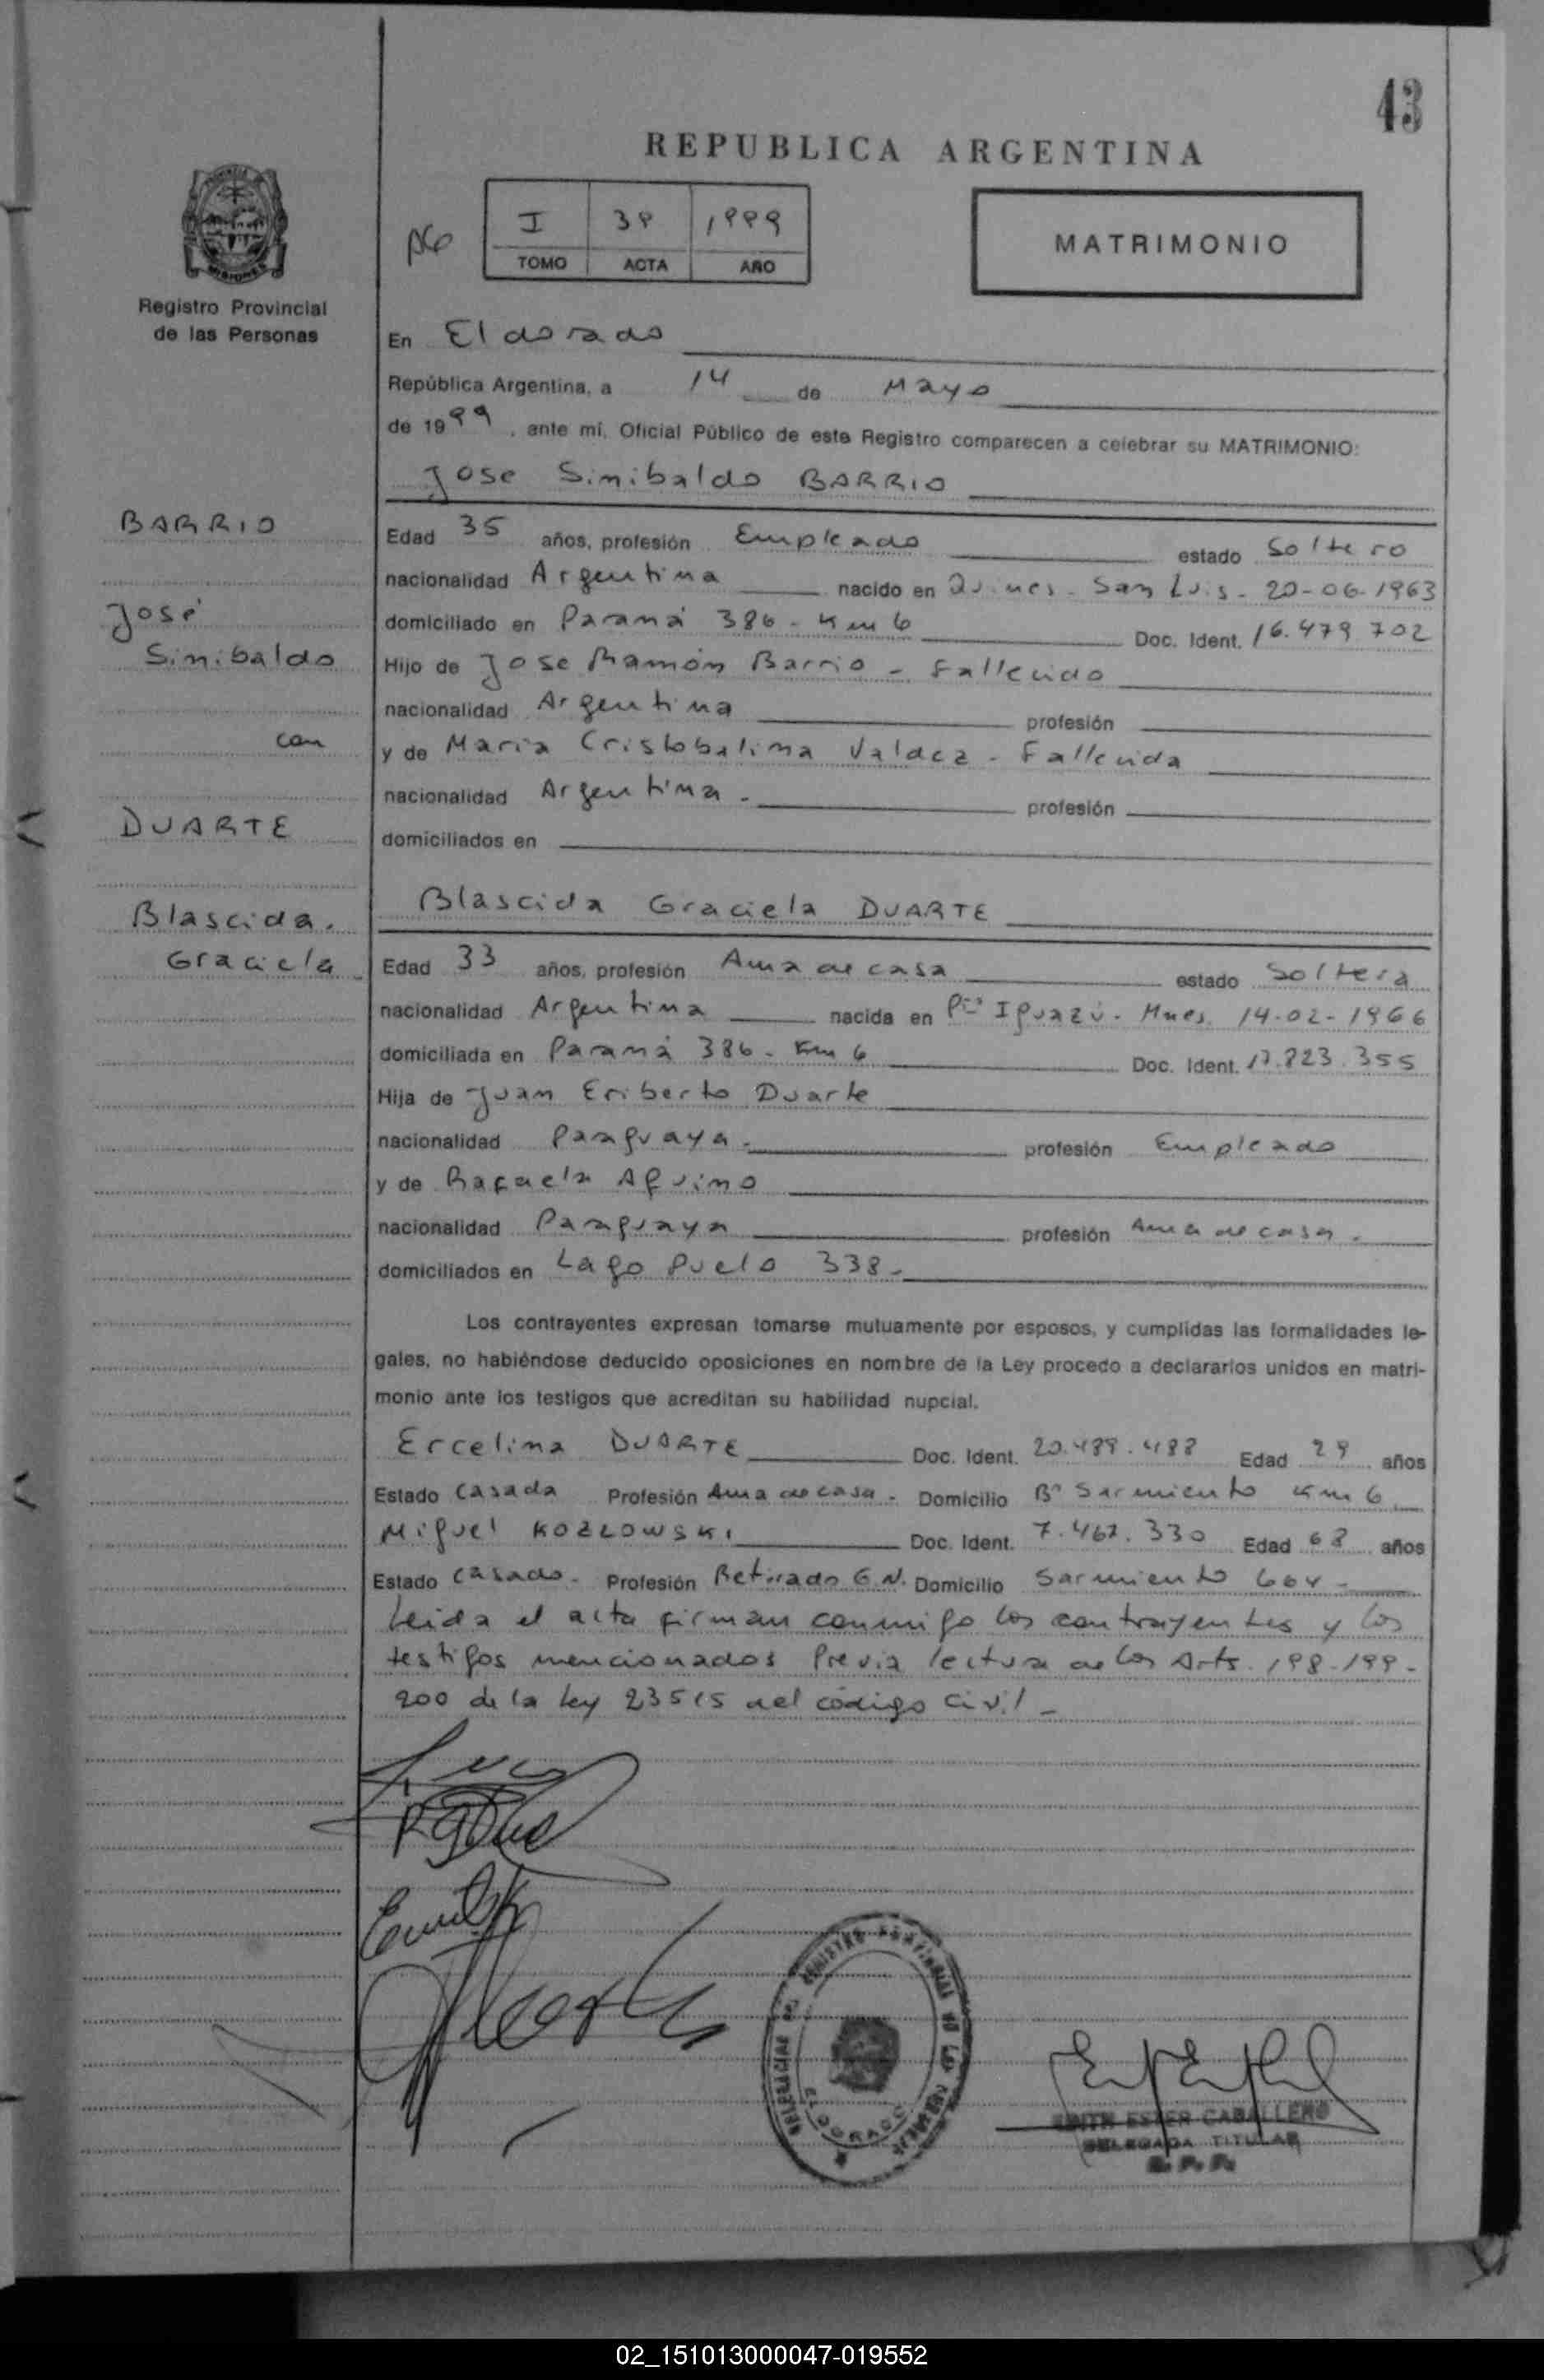 43
REPUBLICA ARGENTINA
I 39 1999
TOMO ACTA AÑO
MATRIMONIO
Registro Provincial
de las Personas
En Eldorado
República Argentina, a 14 de Mayo
de 1999, ante mí, Oficial Público de este Registro comparecen a celebrar su MATRIMONIO:
Jose Sinibaldo BARRIO
BARRIO
José
Sinibaldo
con
DUARTE
Blascida.
Graciela
Edad 35 años, profesión Empleado estado Soltero
nacionalidad Argentina nacido en Quines - San Luis - 20-06-1963
domiciliado en Paraná 386 - Km 6 Doc. Ident. 16.479.702
Hijo de Jose Ramón Barrio - Fallecido
nacionalidad Argentina profesión
y de Maria Cristobalina Valdez - Fallecida
nacionalidad Argentina - profesión
domiciliados en
Blascida Graciela DUARTE
Edad 33 años, profesión Ama de casa estado Soltera
nacionalidad Argentina nacida en Pto Iguazú - Mnes. 14-02-1966
domiciliada en Paraná 386 - Km 6 Doc. Ident. 17.823.355
Hija de Juan Eriberto Duarte
nacionalidad Paraguaya - profesión Empleado
y de Rafaela Aquino
nacionalidad Paraguaya profesión Ama de casa -
domiciliados en Lago Puelo 338 -
Los contrayentes expresan tomarse mutuamente por esposos, y cumplidas las formalidades le-
gales, no habiéndose deducido oposiciones en nombre de la Ley procedo a declararlos unidos en matri-
monio ante los testigos que acreditan su habilidad nupcial.
Ercelina DUARTE Doc. Ident. Edad 29 años
Estado Casada Profesión Ama de casa - Domicilio B° Sarmiento Km 6
Miguel KOZLOWSKI Doc. Ident. 7.467.330 Edad 68 años
Estado Casado - Profesión Retirado G.N. Domicilio Sarmiento 664 -
Leida el acta firman conmigo los contrayentes y los
testigos mencionados Previa lectura de los Arts. 198-199-
200 de la Ley 23515 del código Civil -
ELDORADO
EDITH ESTER CABALLERO
DELEGADA TITULAR
R. P. P.
02_151013000047-019552